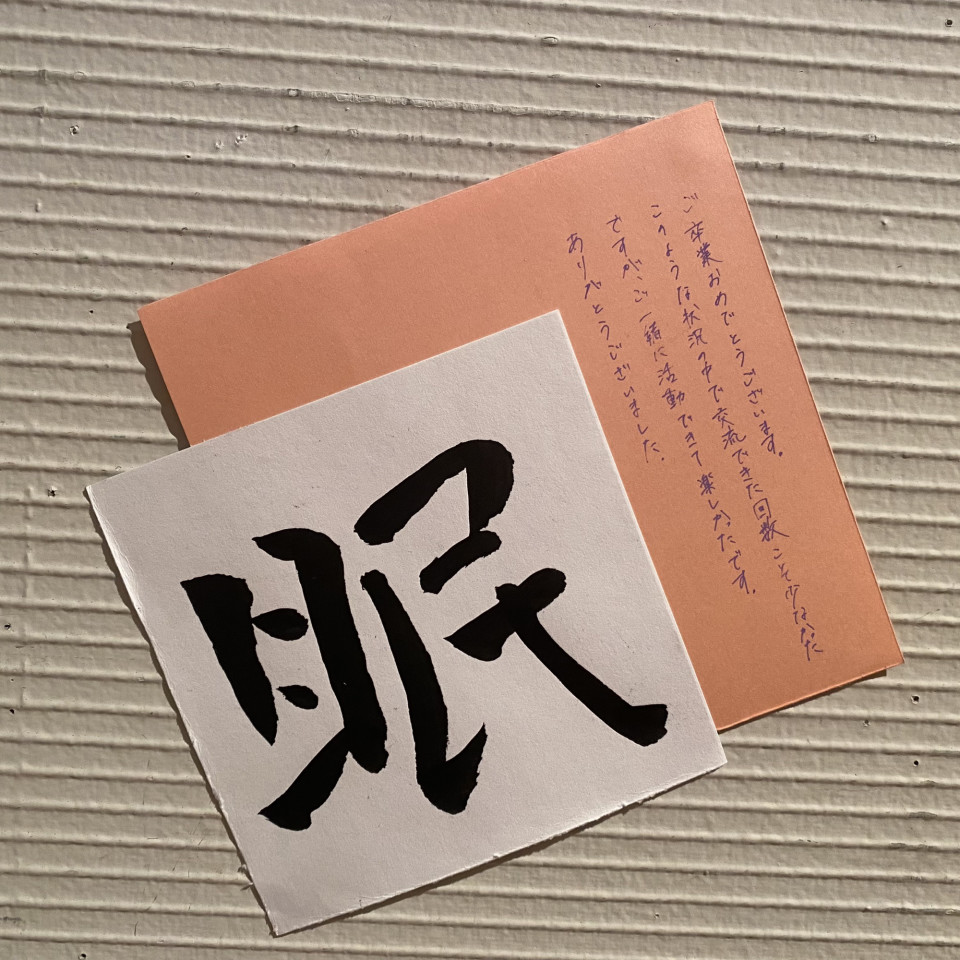 ご卒業おめでとうございます。
このような状況の中で交流できた回数こそ少なかった
ですが、ご一緒に活動できて楽しかったです。
ありがとうございました。
眠